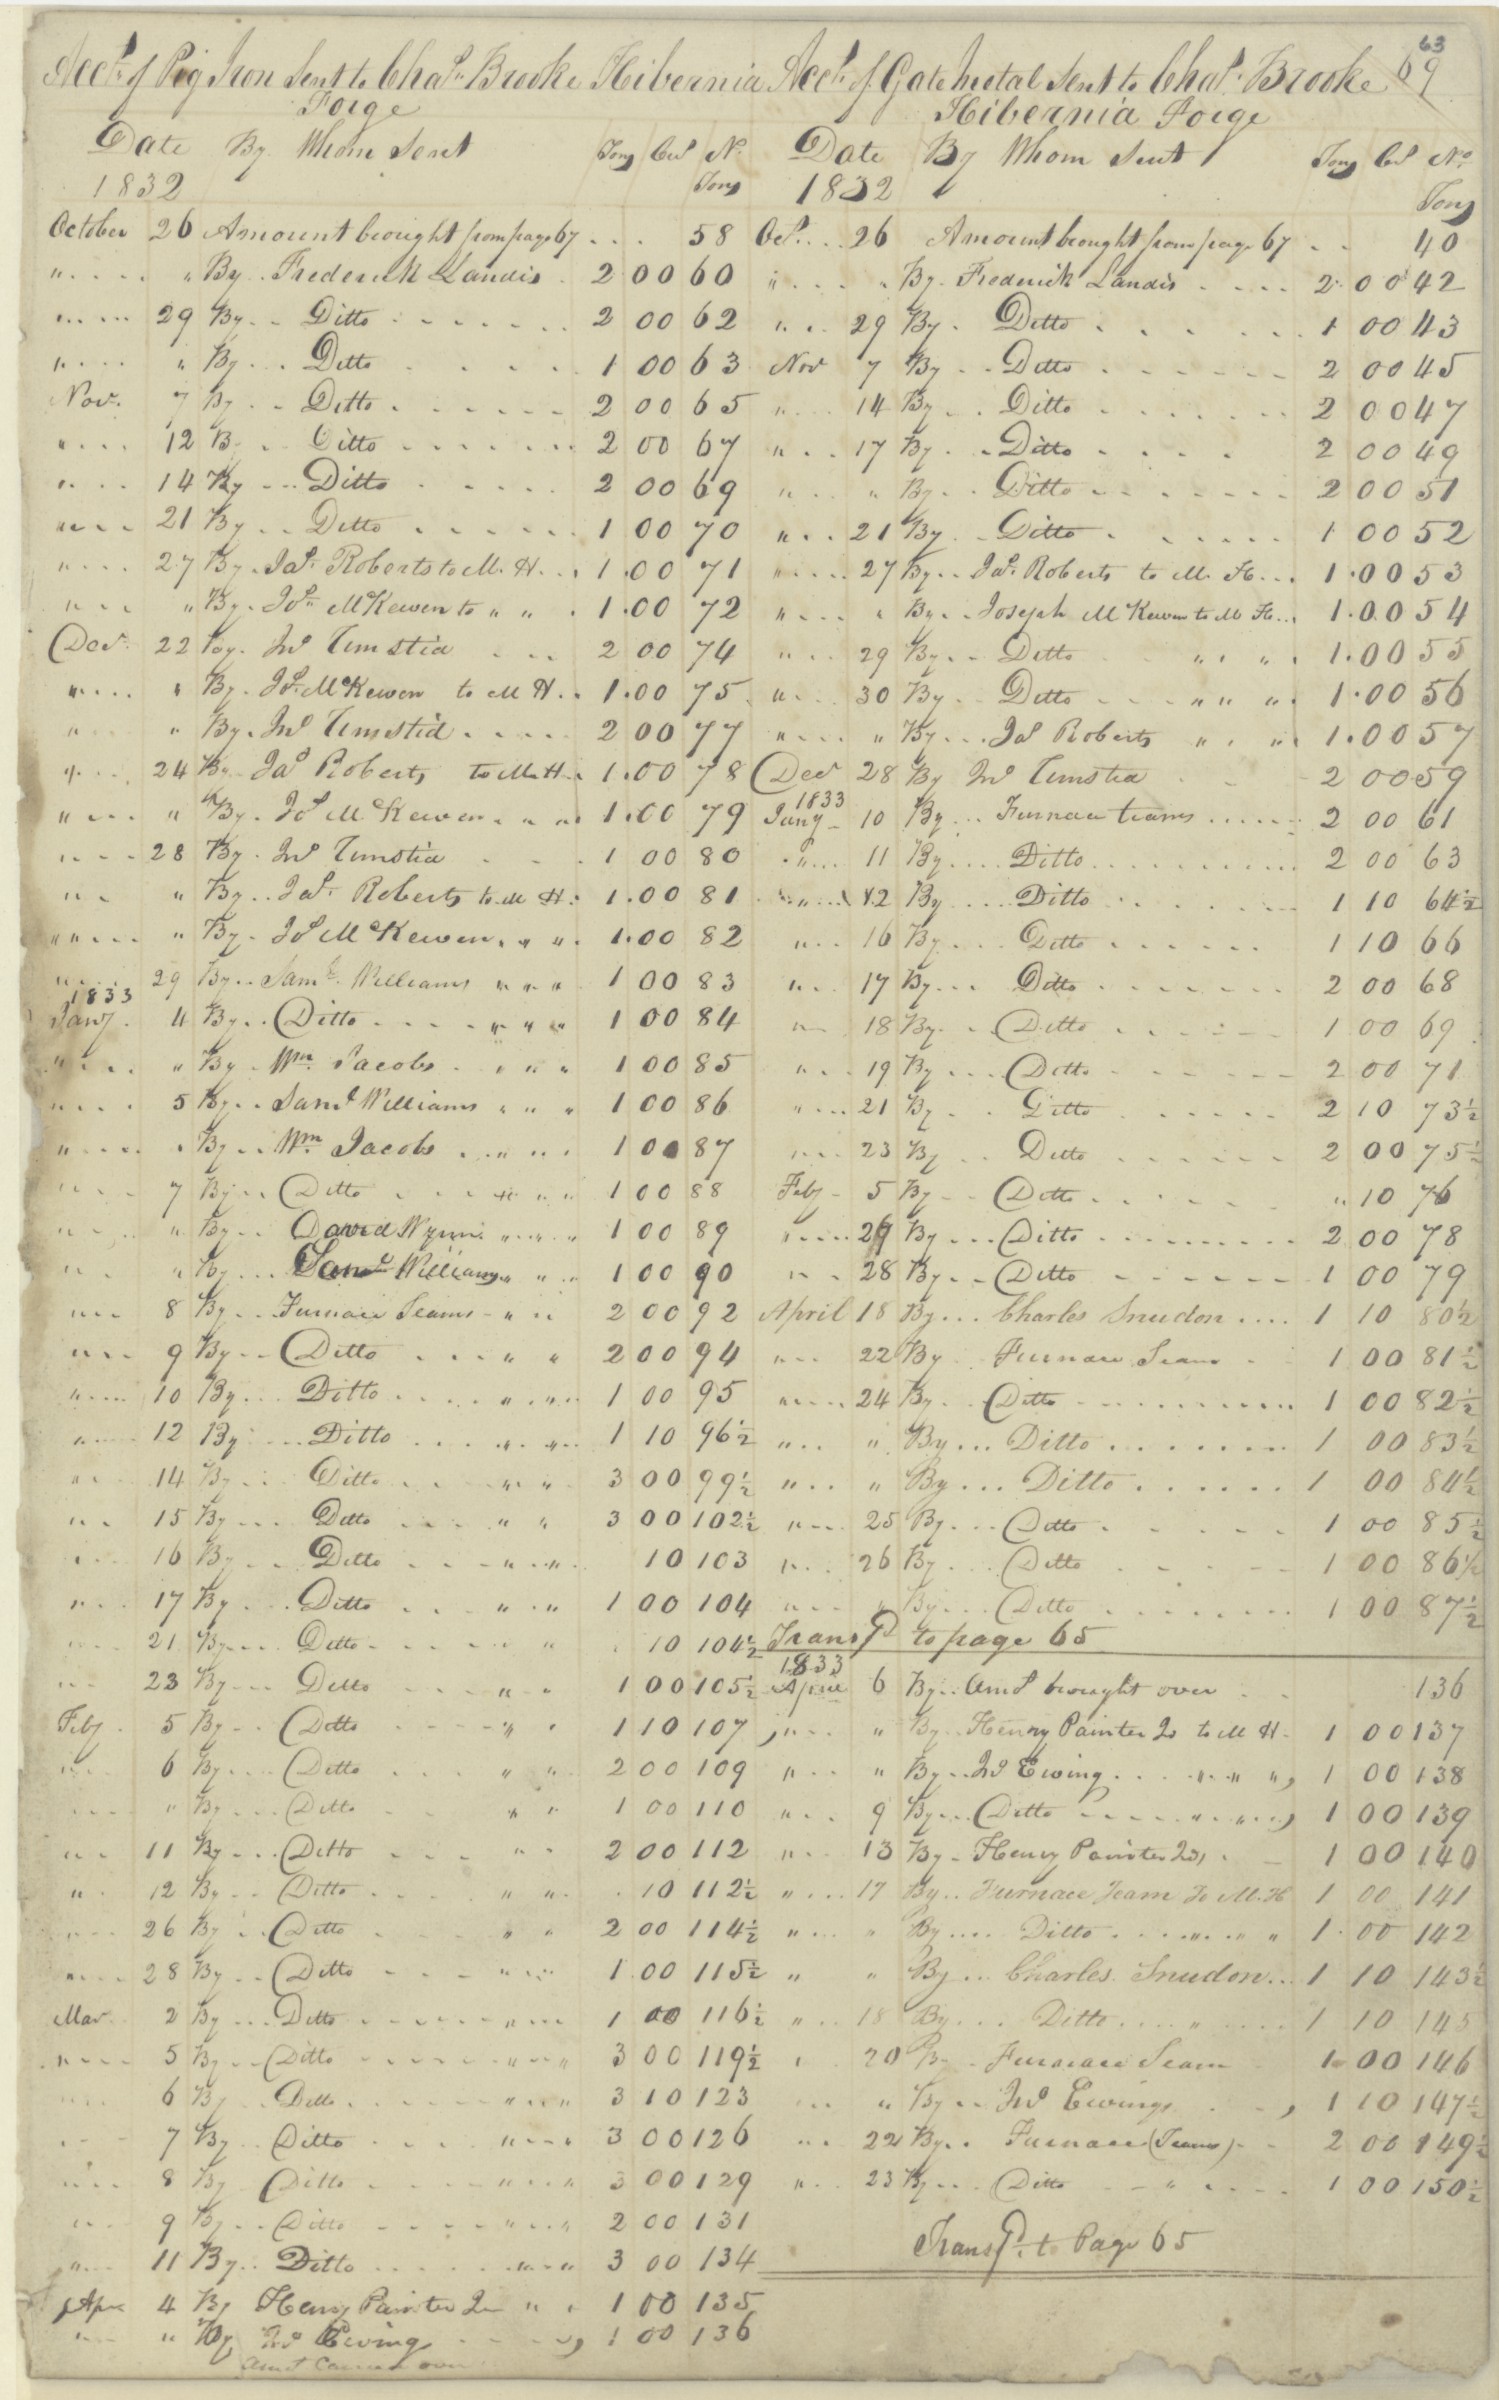 63
Acct. of Pig Iron Sent to Chas. Brooke Hibernia
Forge
Date By Whom Sent Tons Cwt No.
1832 Tons
October 26 Amount brought from page 67 58
" " By Frederick Landis 2 00 60
" 29 By Ditto 2 00 62
" " By Ditto 1 00 63
Nov. 7 By Ditto 2 00 65
" 12 By Ditto 2 00 67
" 14 By Ditto 2 00 69
" 21 By Ditto 1 00 70
" 27 By Jas. Roberts to M. H. 1.00 71
" " By Jos. McKewen to " " 1.00 72
Decr. 22 By Jno Umstid 2 00 74
" " By Js. McKewen to M H 1.00 75
" " By Jno Umstid 2 00 77
" 24 By Jas Roberts to M. H 1.00 78
" " By Jos McKewen " " 1.00 79
" 28 By Jno Umstid 1 00 80
" " By Jas. Roberts to M H. 1.00 81
" " By Jos McKewen " " 1.00 82
" 29 By Saml. Williams " " " 1 00 83
1833
Jany. 4 By Ditto " " " 1 00 84
" " By Wm. Jacobs " " " 1 00 85
" 5 By Saml Williams " " " 1 00 86
" " By Wm Jacobs " " " 1 00 87
" 7 By Ditto " " " 1 00 88
" " By David Wynn " " " 1 00 89
" " By Saml Williams " " " 1 00 90
" 8 By Furnace Teams " " 2 00 92
" 9 By Ditto " " 2 00 94
" 10 By Ditto " " 1 00 95
" 12 By Ditto " " 1 10 96½
" 14 By Ditto " " 3 00 99½
" 15 By Ditto " " 3 00 102½
" 16 By Ditto " " 10 103
" 17 By Ditto " " 1 00 104
" 21 By Ditto " " 10 104½
" 23 By Ditto " " 1 00 105½
Feby 5 By Ditto " " 1 10 107
" 6 By Ditto " " 2 00 109
" " By Ditto " " 1 00 110
" 11 By Ditto " " 2 00 112
" 12 By Ditto " " 10 112½
" 26 By Ditto " " 2 00 114½
" 28 By Ditto " " 1 00 115½
Mar 2 By Ditto " " 1 00 116½
" 5 By Ditto " " " 3 00 119½
" 6 By Ditto " " " 3 10 123
" 7 By Ditto " " 3 00 126
" 8 By Ditto " " " 3 00 129
" 9 By Ditto " " " 2 00 131
" 11 By Ditto " " 3 00 134
Apr 4 By Henry Painter Jr " " 1 00 135
" " By Jno Ewing 1 00 136
Amt Carried over
Acct. of Gate Metal Sent to Chas. Brooke 69
Hibernia Forge
Date By Whom Sent Tons Cwt No.
1832 Tons
Oct. 26 Amount brought from page 67 40
" " By Frederick Landis 2 00 42
" 29 By Ditto 1 00 43
Nov 7 By Ditto 2 00 45
" 14 By Ditto 2 00 47
" 17 By Ditto 2 00 49
" " By Ditto 2 00 51
" 21 By Ditto 1 00 52
" 27 By Jas. Roberts to M. H. 1.00 53
" " By Joseph McKewen to M H. 1.00 54
" 29 By Ditto " " 1.00 55
" 30 By Ditto " " " 1.00 56
" " By Jas Roberts " " 1.00 57
Decr 28 By Jno Umstid 2 00 59
1833
Jany 10 By Furnace teams 2 00 61
" 11 By Ditto 2 00 63
" 12 By Ditto 1 10 64½
" 16 By Ditto 1 10 66
" 17 By Ditto 2 00 68
" 18 By Ditto 1 00 69
" 19 By Ditto 2 00 71
" 21 By Ditto 2 10 73½
" 23 By Ditto 2 00 75½
Feby 5 By Ditto " 10 76
" By Ditto 2 00 78
" 28 By Ditto 1 00 79
April 18 By Charles Snudon 1 10 80½
" 22 By Furnace Team 1 00 81½
" 24 By Ditto 1 00 82½
" " By Ditto 1 00 83½
" " By Ditto 1 00 84½
" 25 By Ditto 1 00 85½
" 26 By Ditto 1 00 86½
" " By Ditto 1 00 87½
Transfd to page 65
1833
April 6 By Amt brought over 136
" " By Henry Painter Jr to M H 1 00 137
" " By Jno Ewing " " " 1 00 138
" 9 By Ditto " " 1 00 139
" 13 By Henry Painter Jr 1 00 140
" 17 By Furnace Team To M. H 1 00 141
" " By Ditto " " " 1 00 142
" " By Charles Snudon 1 10 143½
" 18 By Ditto " 1 10 145
" 20 By Furnace Team 1 00 146
" " By Jno Ewings 1 10 147½
" 22 By Furnace (Teams) 2 00 149½
" 23 By Ditto " 1 00 150½
Transfd. to Page 65